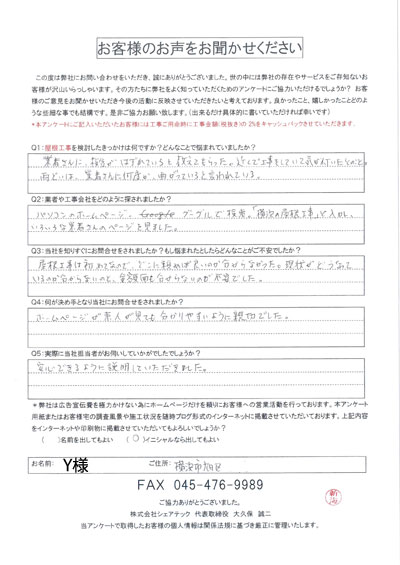 お客様のお声をお聞かせください
この度は弊社にお問い合わせをいただき、誠にありがとうございました。世の中には弊社の存在やサービスをご存知ないお
客様が沢山いらっしゃいます。その方たちに弊社をよく知っていただくためのアンケートにご協力いただけるでしょうか？ お客
様のご意見をお聞かせいただき今後の活動に反映させていただきたいと考えております。良かったこと、嬉しかったことどのよう
な些細な事でも結構です。是非ご協力お願い致します。(出来るだけ具体的に書いていただければ幸いです)
*本アンケートにご記入いただいたお客様には工事ご用命時に工事金額(税抜き)の2%をキャッシュバックさせていただきます。
Q1:屋根工事を検討したきっかけは何ですか？どんなことで悩まれていましたか？
業者さんに、板金がはずれていると教えてもらった。近くで工事をしていて気が付いたとのこと。
雨どいは、業者さんに何度か、曲がっていると言われている。
Q2:業者や工事会社をどのように探されましたか？
パソコンのホームページ。 グーグルで検索。「横浜の屋根工事」で入力し、
いろいろな業者さんのページを見ました。
Q3:当社を知りすぐにお問合せをされましたか？もし悩まれたとしたらどんなことがご不安でしたか？
屋根工事は初めてなので、どこに頼めば良いのか分からなかった。現状がどうなって
いるのか分からないのと、金額面も分からないのが不安でした。
Q4:何が決め手となり当社にお問合せをされましたか？
ホームページが素人が見ても分かりやすいように親切でした。
Q5:実際に当社担当者がお伺いしていかがでしたでしょうか？
安心できるように説明していただきました。
＊弊社は広告宣伝費を極力かけない為にホームページだけを頼りにお客様への営業活動を行っております。本アンケート
用紙またはお客様宅の調査風景や施工状況を随時ブログ形式のインターネットに掲載させていただいております。上記内容
をインターネットや印刷物に掲載させていただいてもよろしいでしょうか？
( )名前を出してもよい (○)イニシャルなら出してもよい
お名前: Y様 ご住所: 横浜市旭区
FAX 045-476-9989
ご協力ありがとうございました。
株式会社シェアテック 代表取締役 大久保 誠二
当アンケートで取得したお客様の個人情報は関係法規に基づき厳正に管理いたします。